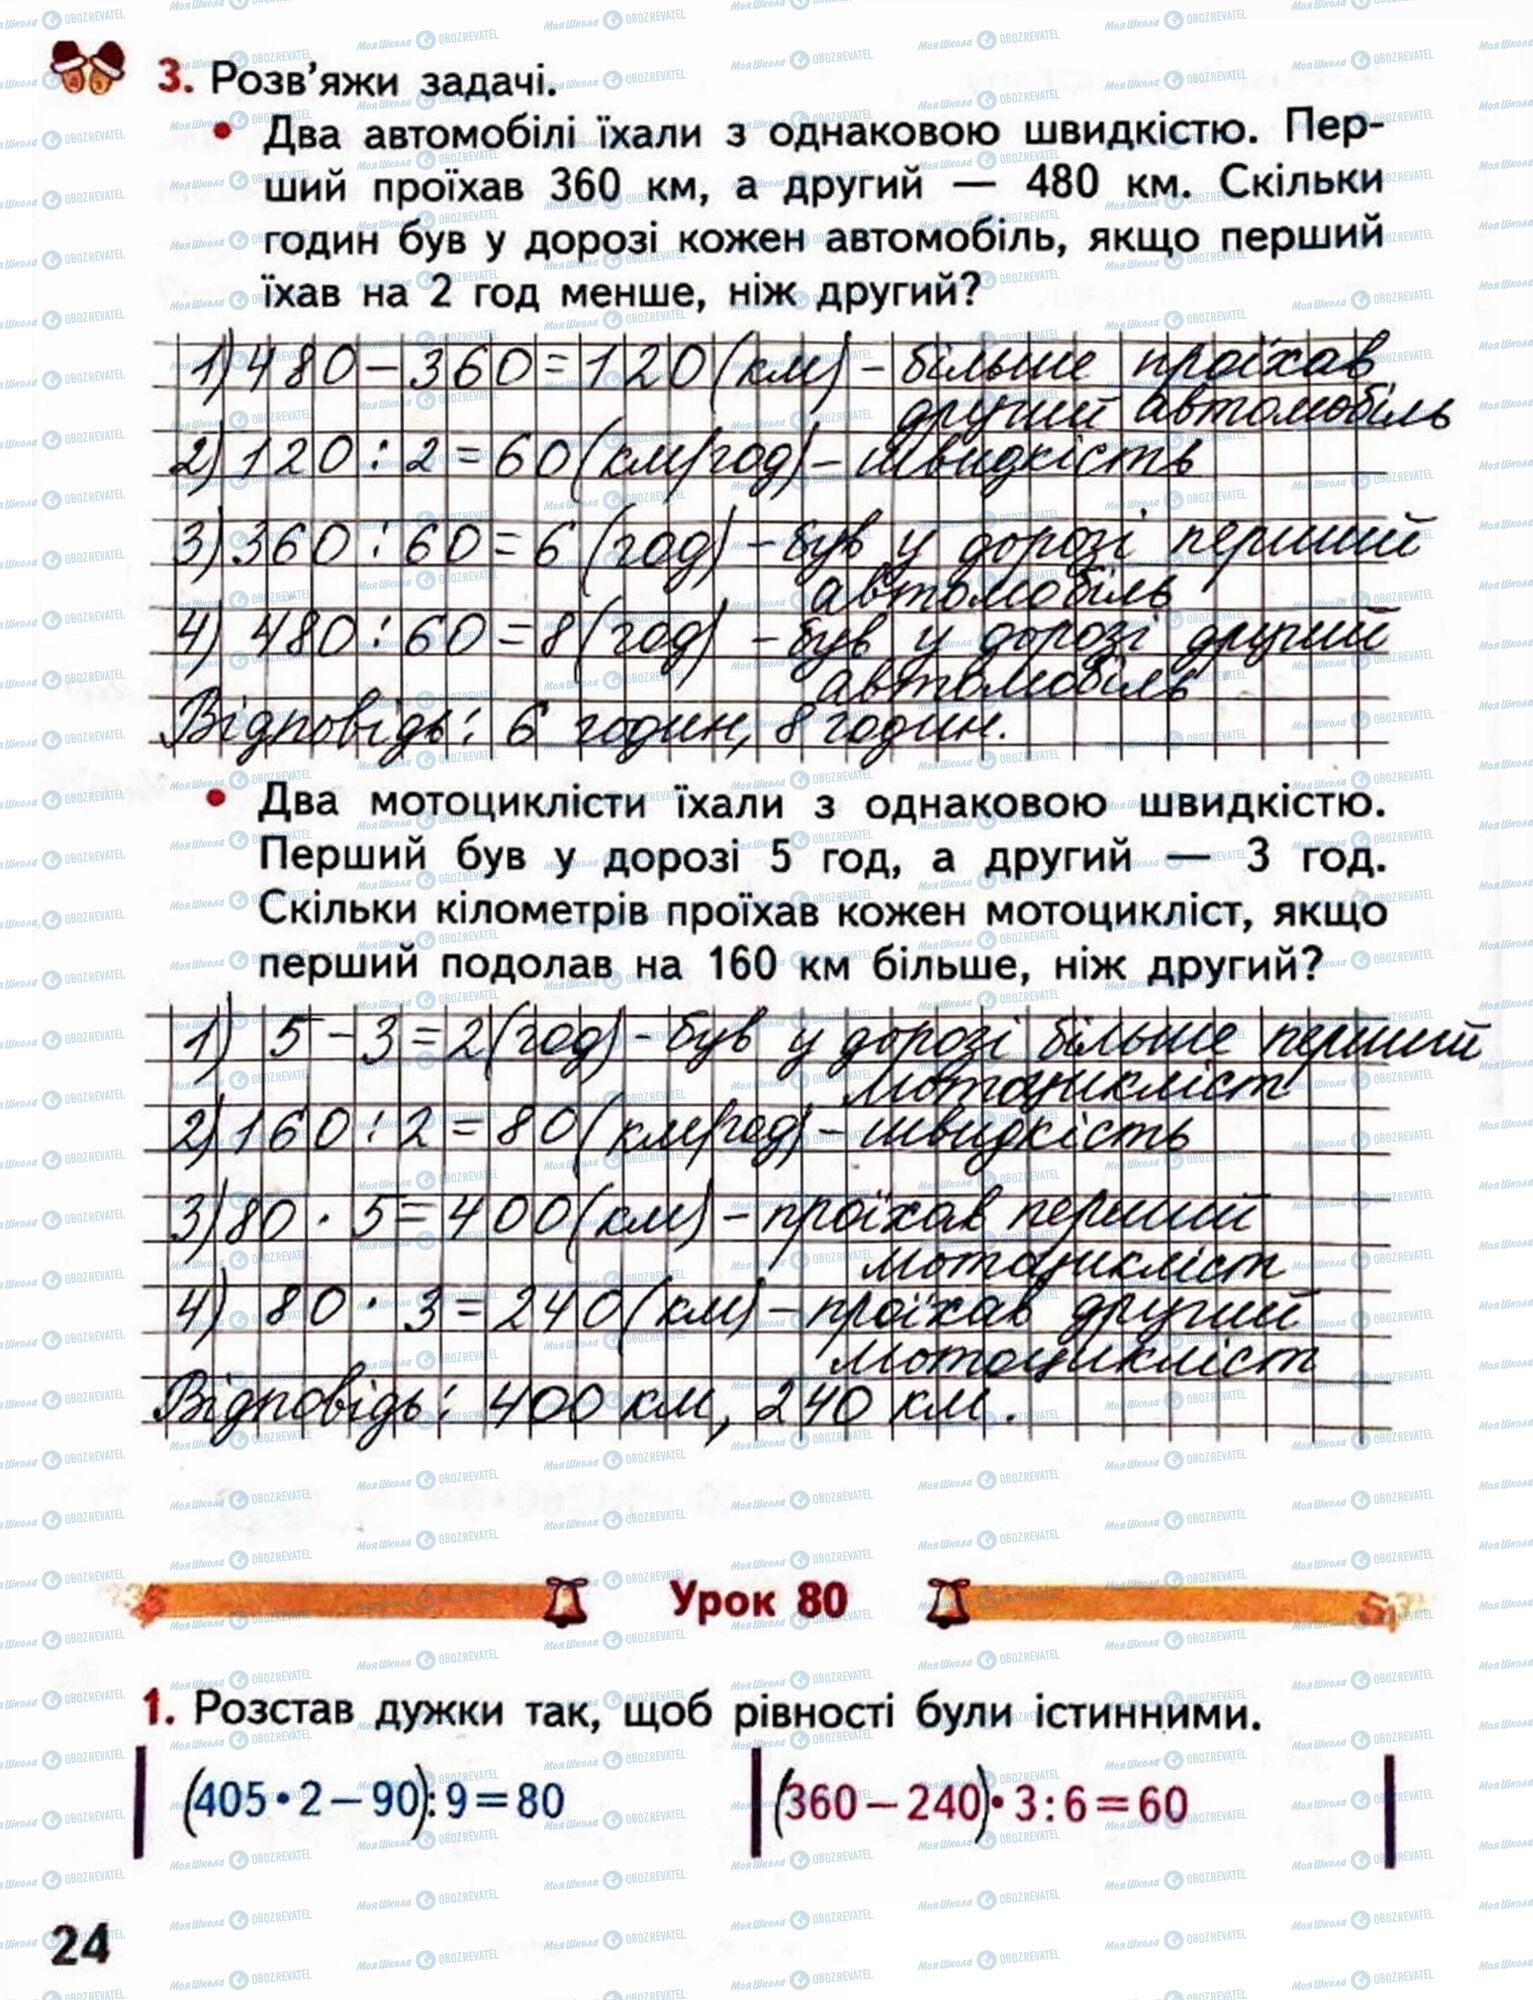 3. Розв'яжи задачі.
• Два автомобілі їхали з однаковою швидкістю. Пер-
ший проїхав 360 км, а другий — 480 км. Скільки
годин був у дорозі кожен автомобіль, якщо перший
їхав на 2 год менше, ніж другий?
1) 480 − 360 = 120 (км) − більше проїхав
другий автомобіль
2) 120 : 2 = 60 (км/год) − швидкість
3) 360 : 60 = 6 (год) − був у дорозі перший
автомобіль
4) 480 : 60 = 8 (год) − був у дорозі другий
автомобіль
Відповідь: 6 годин, 8 годин.
• Два мотоциклісти їхали з однаковою швидкістю.
Перший був у дорозі 5 год, а другий — 3 год.
Скільки кілометрів проїхав кожен мотоцикліст, якщо
перший подолав на 160 км більше, ніж другий?
1) 5 − 3 = 2 (год) − був у дорозі більше перший
мотоцикліст
2) 160 : 2 = 80 (км/год) − швидкість
3) 80 · 5 = 400 (км) − проїхав перший
мотоцикліст
4) 80 · 3 = 240 (км) − проїхав другий
мотоцикліст
Відповідь: 400 км, 240 км.
Урок 80
1. Розстав дужки так, щоб рівності були істинними.
(405 • 2 − 90) : 9 = 80
(360 − 240) • 3 : 6 = 60
24
МояШкола OBOZREVATEL